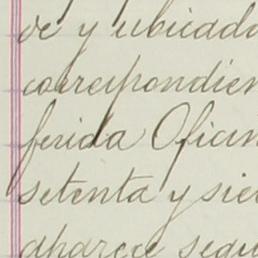 de y ubicado
correspondien
ferida Oficin
setenta y sie
aparece segu